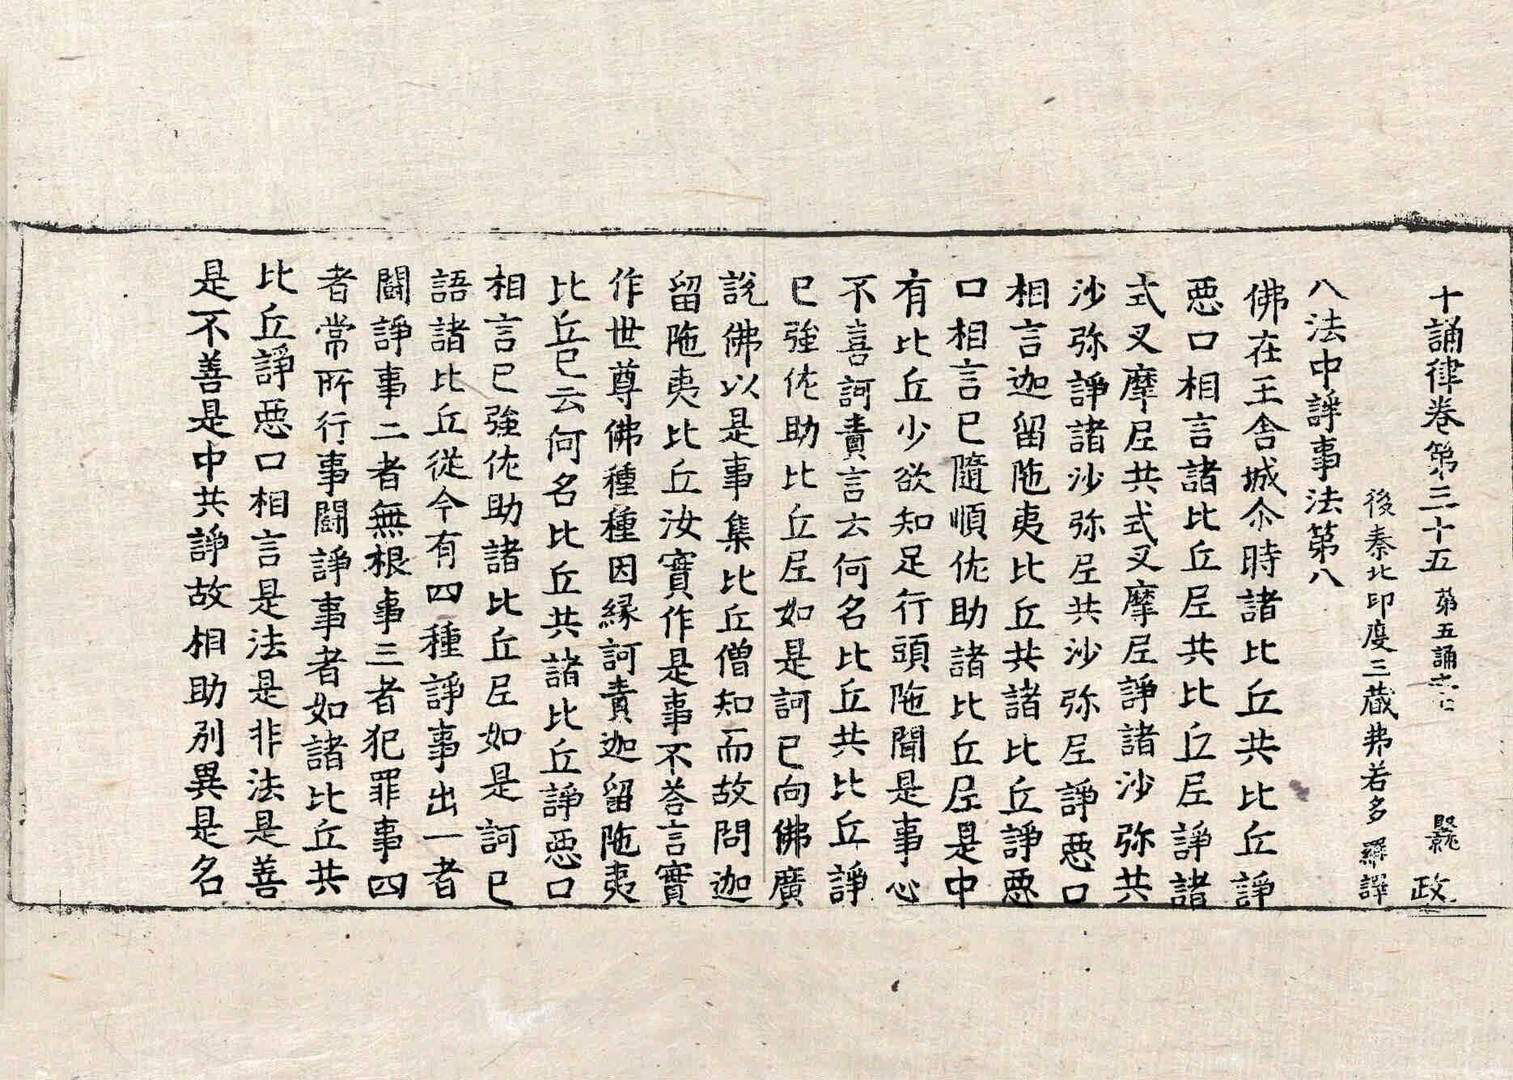 十誦律卷第三十五 第五誦之七 政
後秦北印度三藏弗若多羅譯
八法中諍事法第八
佛在王舍城尒時諸比丘共比丘諍
惡口相言諸比丘尼共比丘尼諍諸
式叉摩尼共式叉摩尼諍諸沙弥共
沙弥諍諸沙弥尼共沙弥尼諍惡口
相言迦留陁夷比丘共諸比丘諍惡
口相言已隨順佐助諸比丘尼是中
有比丘少欲知足行頭陁聞是事心
不喜訶責言云何名比丘共比丘諍
已強佐助比丘尼如是訶已向佛廣
說佛以是事集比丘僧知而故問迦
留陁夷比丘汝實作是事不荅言實
作世尊佛種種因緣訶責迦留陁夷
比丘已云何名比丘共諸比丘諍惡口
相言已強佐助諸比丘尼如是訶已
語諸比丘從今有四種諍事出一者
鬪諍事二者無根事三者犯罪事四
者常所行事鬪諍事者如諸比丘共
比丘諍惡口相言是法是非法是善
是不善是中共諍故相助別異是名